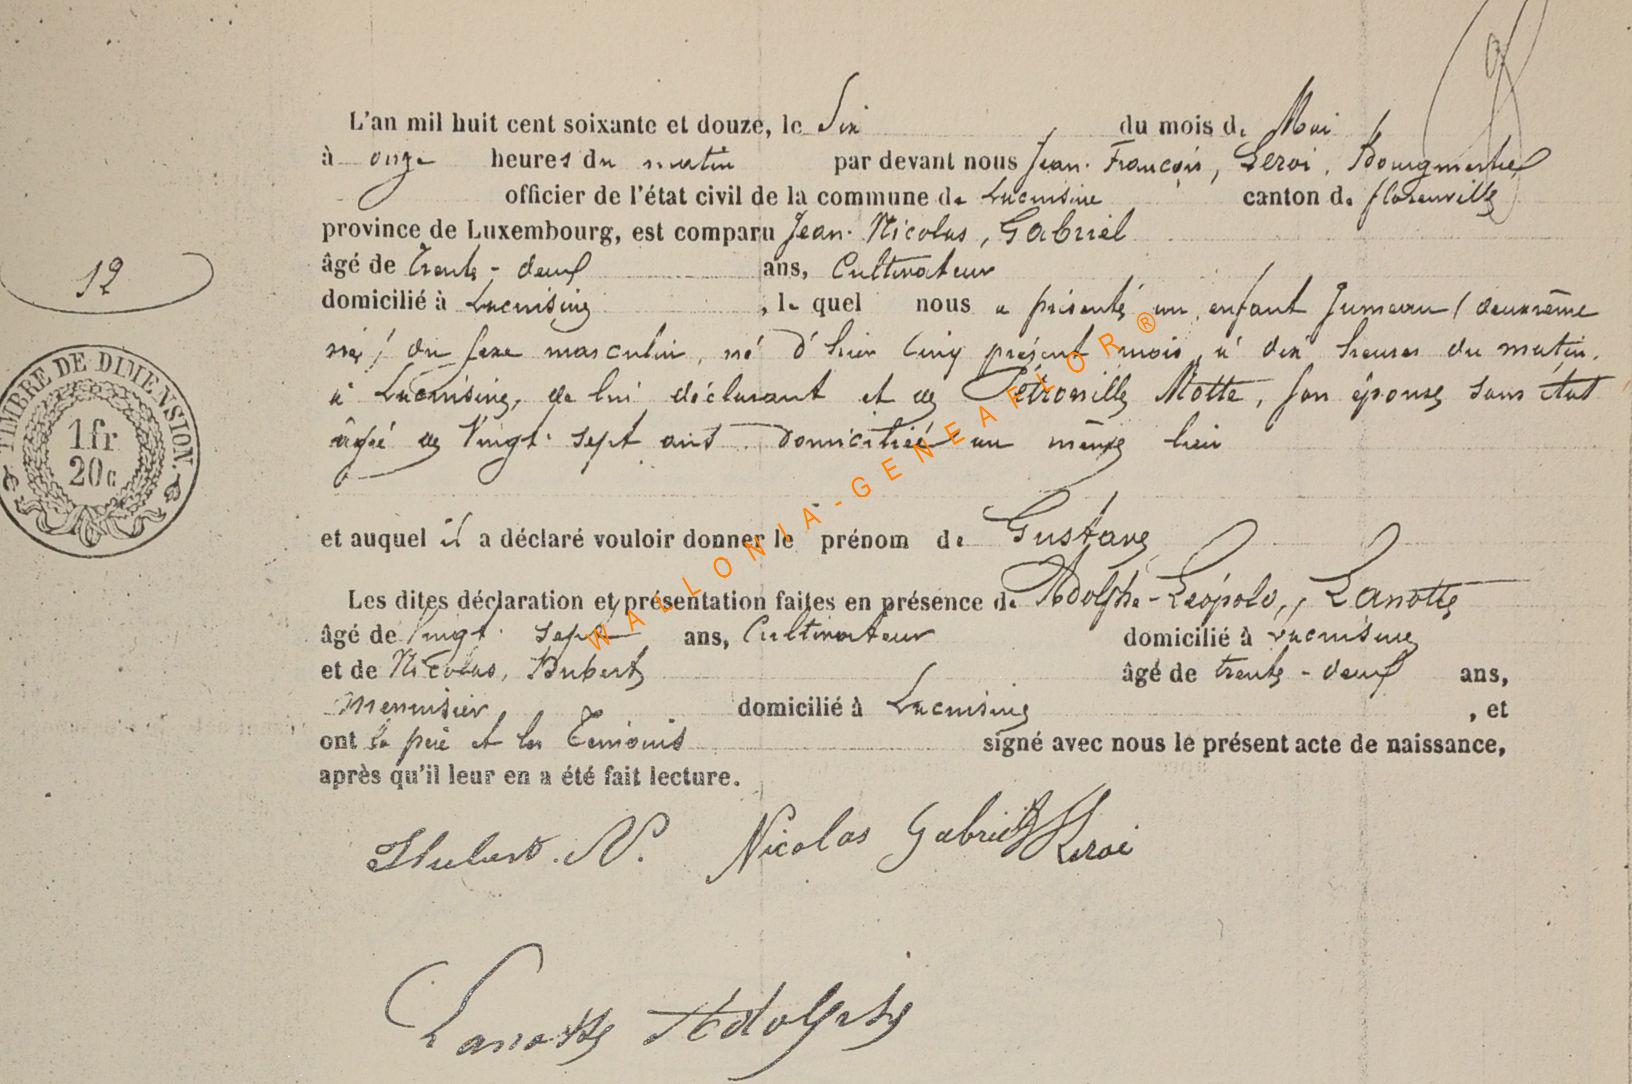 L'an mil huit cent soixante et douze, le Six du mois de Mai
à onze heures du matin par devant nous Jean-François, Leroi, Bourgmestre
officier de l'état civil de la commune de Lacuisine canton de florenville
province de Luxembourg, est comparu Jean-Nicolas, Gabriel
âgé de trente-deux ans, Cultivateur
domicilié à Lacuisine, le quel nous a présenté un enfant Jumeau (deuxième
né) du sexe masculin, né d'hier Cinq présent mois, à dix heures du matin,
à Lacuisine, de lui déclarant et de Pétronille Motte, son épouse sans état
âgée de Vingt-sept ans domiciliée au même lieu
et auquel il a déclaré vouloir donner le prénom de Gustave
Les dites déclaration et présentation faites en présence de Adolphe-Léopold, Lanotte
âgé de Vingt-sept ans, Cultivateur domicilié à Lacuisine
et de Nicolas, Hubert âgé de trente-deux ans,
menuisier domicilié à Lacuisine, et
ont le père et les témoins signé avec nous le présent acte de naissance,
après qu'il leur en a été fait lecture.
Hubert. N. Nicolas Gabriel Leroi
Lanotte Adolphe
12
TIMBRE DE DIMENSION.
1fr
20c
WALLONIA-GENEAFLOR ®